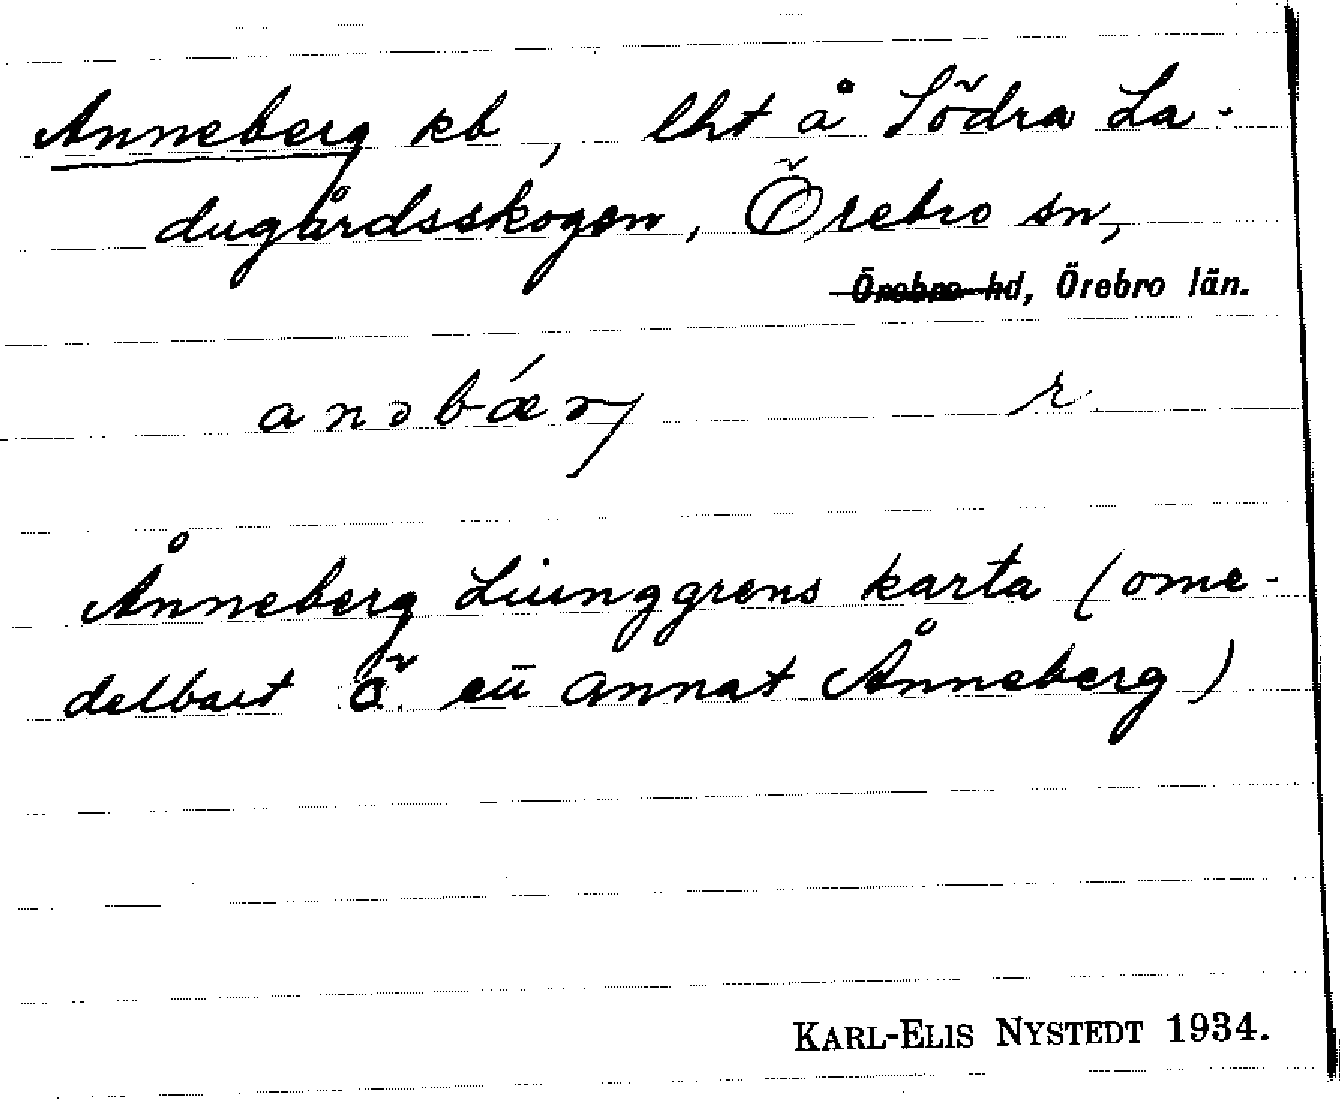 Anneberg kb, lht å Södra La-
dugårdsskogen, Örebro sn,
Örebro hd, Örebro län.
anəbǽrj r
Ånneberg Liunggrens karta (ome-
delbart ö ett annat Ånneberg)
KARL-ELIS NYSTEDT 1934.